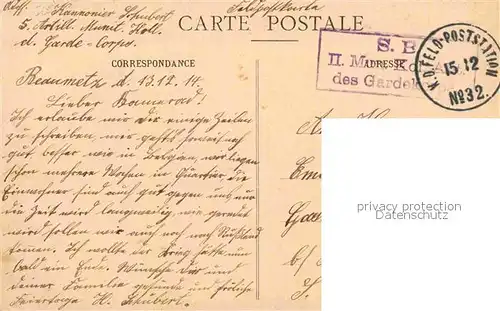 Abs. Kannonier Schubert
5. Artill. Munit. Kol.
d. Garde-Corps.
Feldpostkarte
CARTE POSTALE
S. B.
II. M
des Gardek
K.D. FELD-POSTSTATION
15 12
No 32.
CORRESPONDANCE
ADRESSE
Beaumetz d. 13.12.14.
Lieber Kamerad!
Ich erlaube mir Dir einige Zeilen
zu schreiben, mir gehts soweit noch
gut besser wie in Belgien, wir liegen
schon mehrere Wochen in Quartier die
Einwohner sind auch gut gegen uns nur
die Zeit wird langweilig, wie geredet
wird sollen wir auch noch nach Rußland
kommen. Ich wollte der Krieg hätte nun
bald ein Ende. Wünsche Dir und
deiner Familie gesunde und fröhliche
Feiertage H. Schubert.
privacy protection
Datenschutz